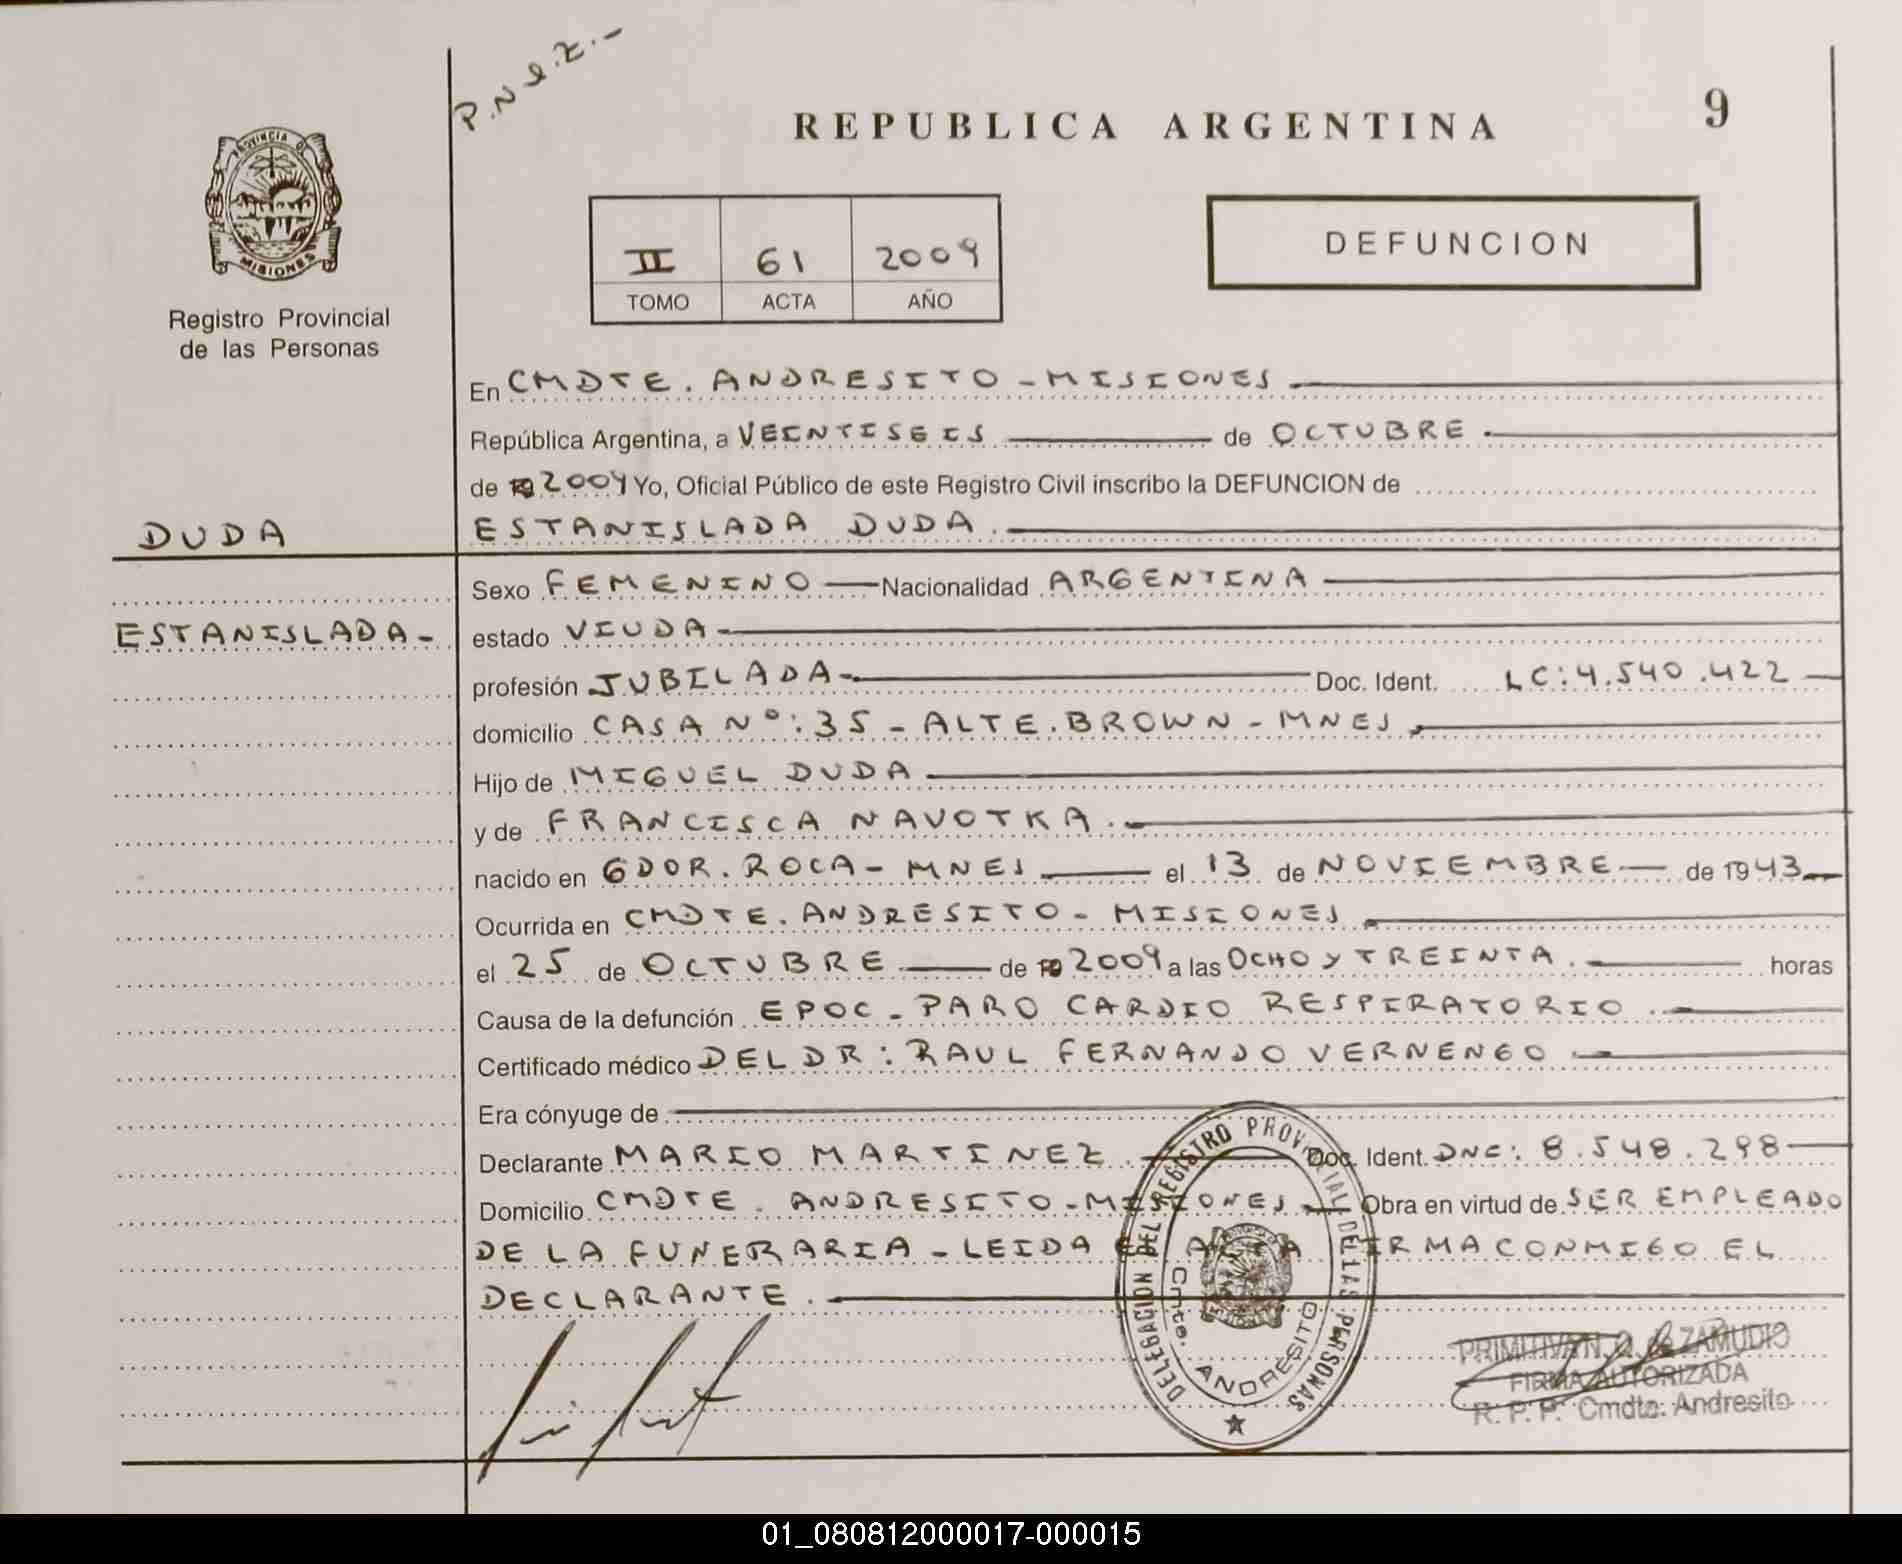 P.N.I.Z.-
REPUBLICA ARGENTINA
9
PROVINCIA DE
MISIONES
Registro Provincial
de las Personas
II 61 2009
TOMO ACTA AÑO
DEFUNCION
En CMDTE. ANDRESITO - MISIONES
República Argentina, a VEINTISEIS de OCTUBRE.
de 19 2009 Yo, Oficial Público de este Registro Civil inscribo la DEFUNCION de
DUDA
ESTANISLADA DUDA.
Sexo FEMENINO Nacionalidad ARGENTINA
ESTANISLADA-
estado VIUDA
profesión JUBILADA Doc. Ident. LC: 4.540.422
domicilio CASA Nº: 35 - ALTE. BROWN - MNES
Hijo de MIGUEL DUDA
y de FRANCISCA NAVOTKA.
nacido en GDOR. ROCA - MNES el 13 de NOVIEMBRE de 1943
Ocurrida en CMDTE. ANDRESITO - MISIONES
el 25 de OCTUBRE de 19 2009 a las OCHO y TREINTA. horas
Causa de la defunción EPOC - PARO CARDIO RESPIRATORIO.
Certificado médico DEL DR: RAUL FERNANDO VERNENGO
Era cónyuge de
Declarante MARIO MARTINEZ. Doc. Ident. DNI: 8.548.298
Domicilio CMDTE. ANDRESITO - MISIONES Obra en virtud de SER EMPLEADO
DE LA FUNERARIA - LEIDA EL ACTA FIRMA CONMIGO EL
DECLARANTE.
DELEGACION DEL REGISTRO PROVINCIAL DE LAS PERSONAS
Cmte. ANDRESITO
PRIMITIVA N. Q. de ZAMUDIO
FIRMA AUTORIZADA
R. P. P. Cmdte. Andresito
01_080812000017-000015